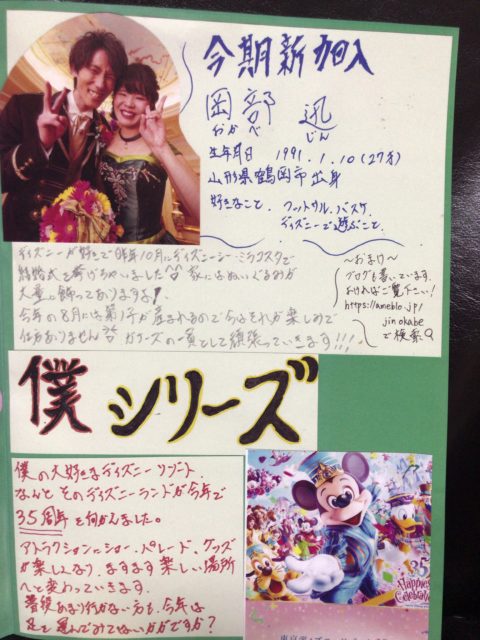 今期新加入
岡部 迅
おかべ じん
生年月日 1991.1.10(27才)
山形県鶴岡市出身
好きなこと、フットサル、バスケ、
ディズニーで遊ぶこと。
ディズニーが好きで昨年10月にディズニーシー・ミラコスタで
結婚式を挙げちゃいました 家にはぬいぐるみが
大量に飾ってありますよ!
今年の8月には第1子が産まれるので今はそれが楽しみで
仕方ありません ガラーズの一員として頑張っていきます!!!
〜おまけ〜
ブログも書いています。
よければご覧下さい!
https://ameblo.jp/
jinokabe
で検索
僕シリーズ
僕の大好きなディズニーリゾート、
なんとそのディズニーランドが今年で
35周年を向かえました。
アトラクションにショー・パレード、グッズ
が楽しくなり、ますます楽しい場所
へと変わっていきます。
普段あまり行かない方も、今年は
足を運んでみてはいかがですか?
35
Happiest
Celebration!